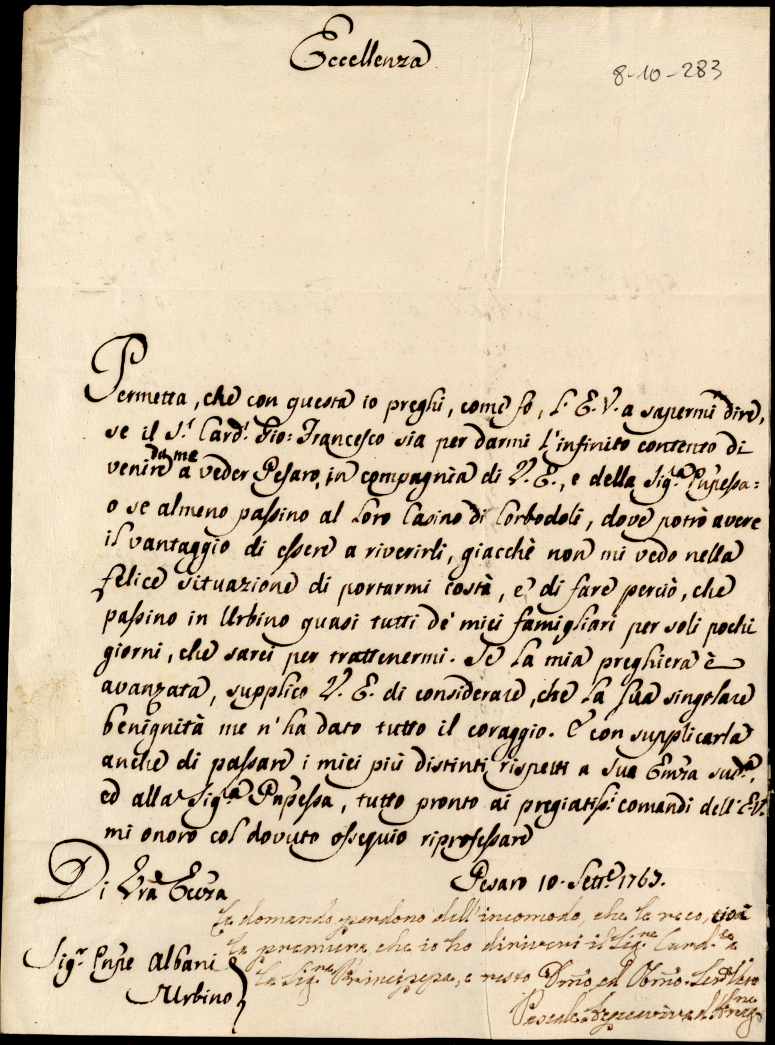 Eccellenza
8-10-283
Permetta, che con questa io preghi, come fo, l'E.V. a sapermi dire,
se il S.r Card.l Gio: Francesco sia per darmi l'infinito contento di
venire da me a veder Pesaro, in compagnia di V.E., e della Sig.ra Pnpessa:
o se almeno passino al Loro Casino di Corbodoli, dove potrò avere
il vantaggio di essere a riverirli, giacchè non mi vedo nella
felice situazione di portarmi costà, e di fare perciò, che
passino in Urbino quasi tutti de' miei famigliari per soli pochi
giorni, che sarei per trattenermi. Se la mia preghiera è
avanzata, supplico V.E. di considerare, che la sua singolare
benignità me n'ha dato tutto il coraggio. E con supplicarla
anche di passare i miei più distinti rispetti a sua Emza sud.a,
ed alla Sig.ra Pnpessa, tutto pronto ai pregiatiss.i comandi dell'E.V.
mi onoro col dovuto ossequio riprofessare
Di Vra Eccza
Pesaro 10. Sett.e 1763.
La domando perdono dell'incomodo, che la reco, cioè
la premura, che io ho di riveri il Sig.re Card.le e
la Sig.ra Principepa, e resto Dmo ed Obmo. Ser.
Sig.r Pnpe Albani
Urbino
Pascale